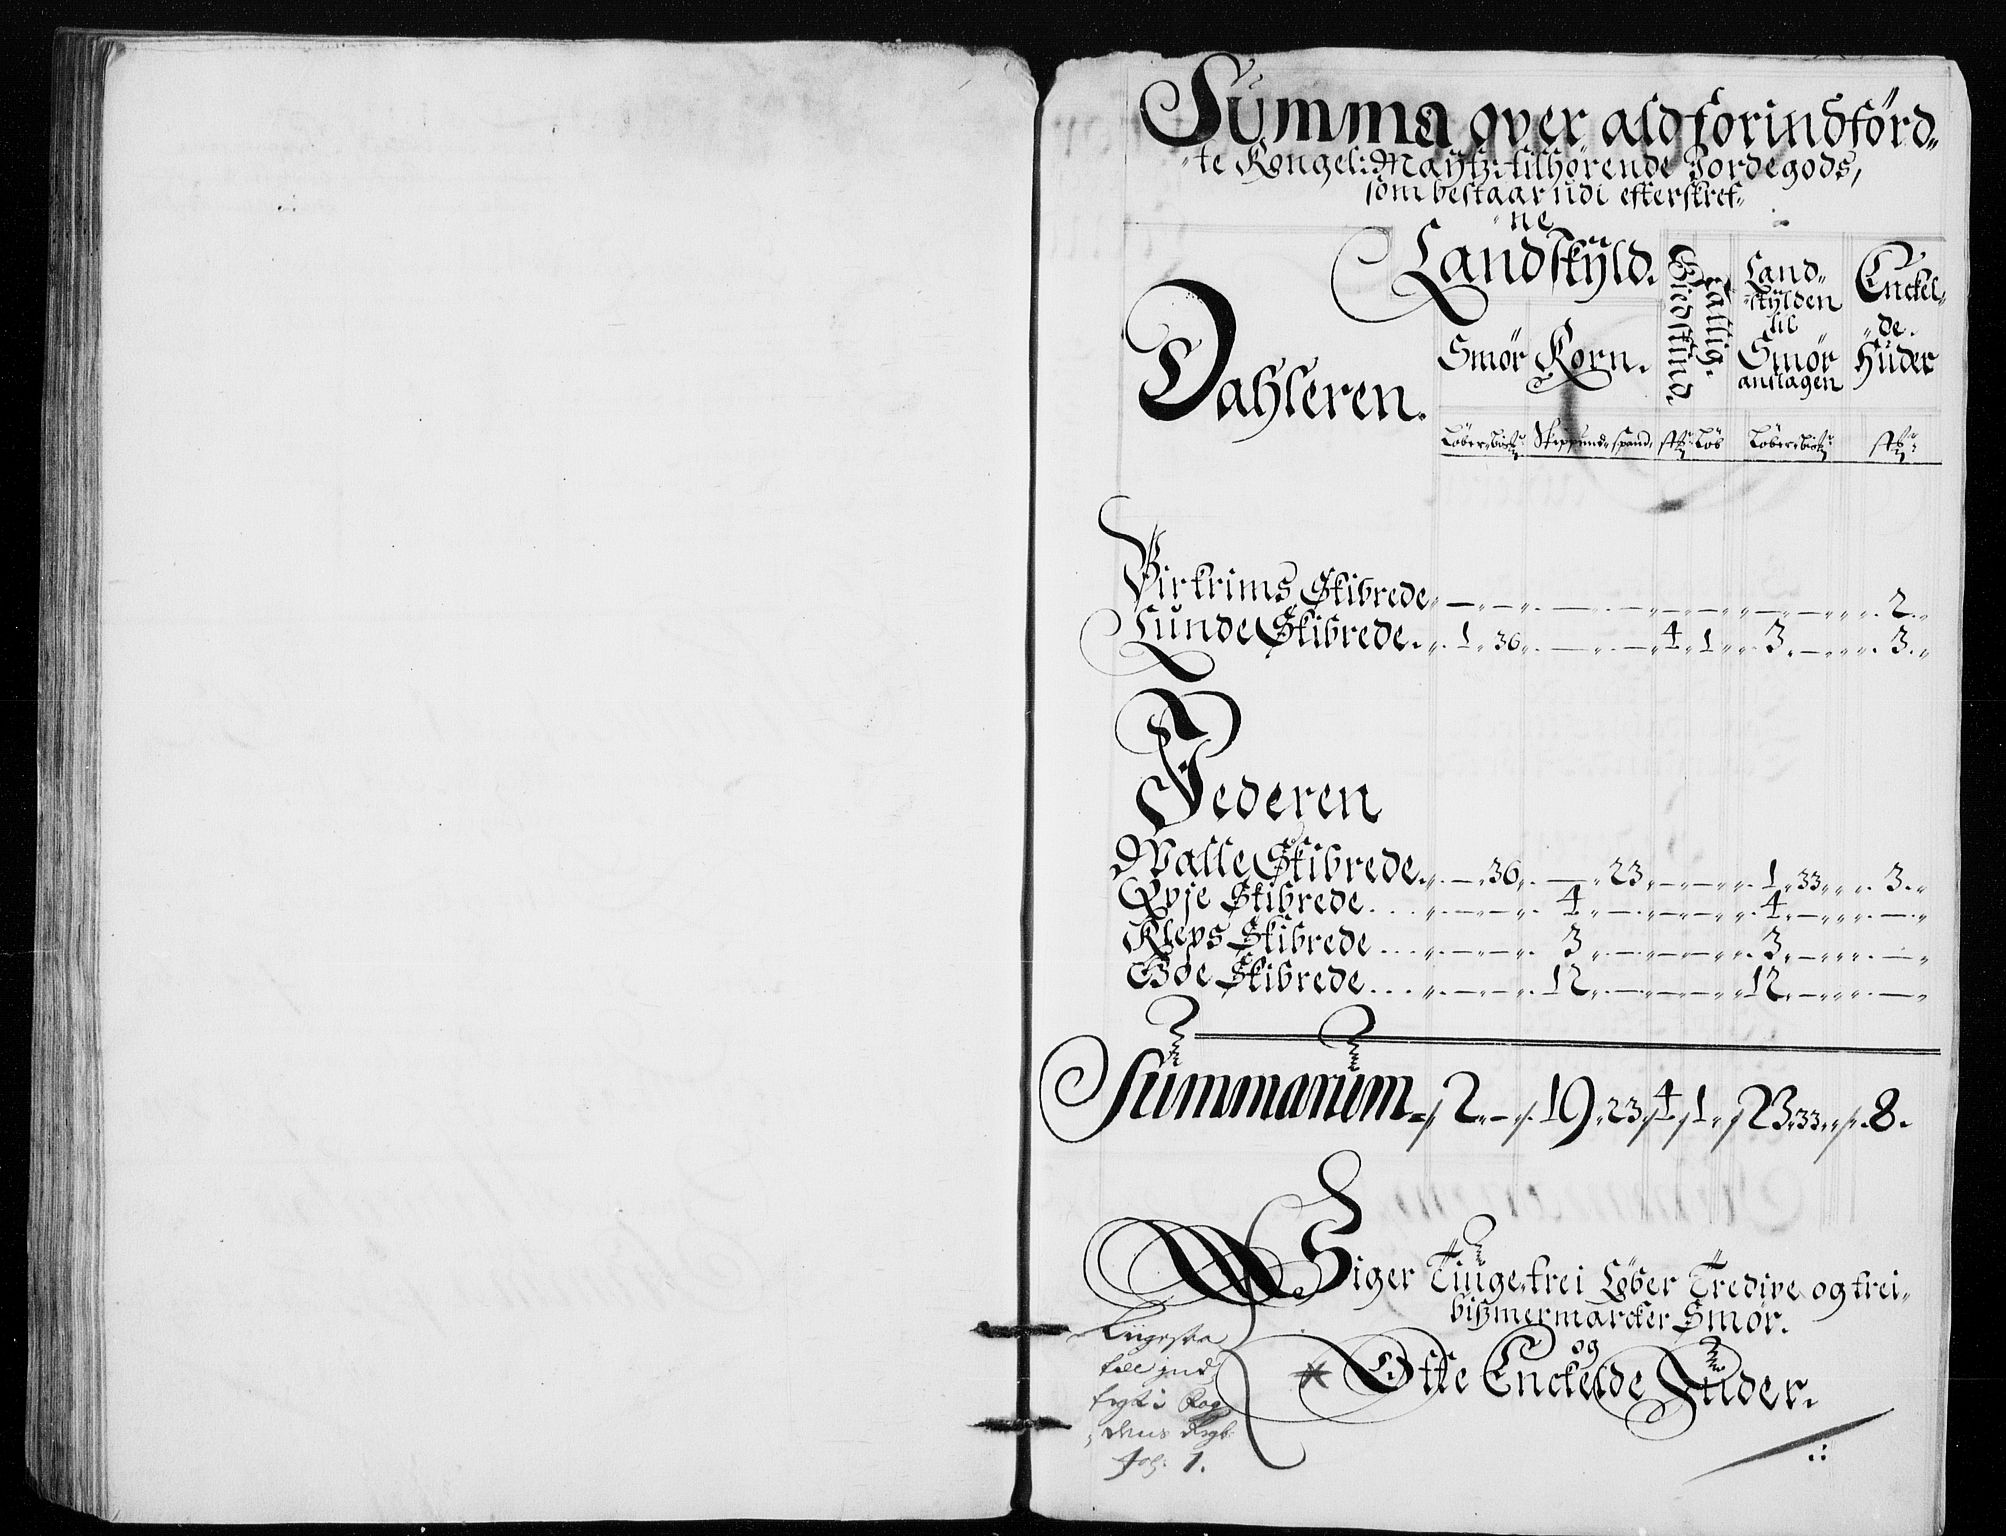 Summa over ald forindförd„
„te Kongel: Maÿtz: tilhørende Jordegods,
som bestaar udi efterskref„
„ne
Landskÿld.
Dahleren.
Smør Korn.
Giedskind.
Kallig.
Land„
„skÿlden
til
Smør
anslagen
Enckel„
„de.
Huder
Löber„ Skippund„ spand, Löb Löber„
Birkrims Skibrede„ — — — — — — — 2.„
Lunde Skibrede. „ 1„ 36„ — — 4„ 1„ 3„ — 3.„
Jederen
Walle Skibrede. „ — 36„ — 23„ — — 1„ 33„ 3.„
Qvje Skibrede. . . „ — — 4„ — — — 4„ — —„
Kleps Skibrede . . . „ — — 3„ — — — 3„ — —„
Boe Skibrede. . . „ — — 12„ — — — 12„ — —„
Summarum„ 2„ — 19„ 23 4 1„ 23„ 33„ 8.
Siger Tiuge„ trei Løber Tredive og trei„
bißmermarcker Smör.
og
Otte Enckelde Huder.
fol: 1.